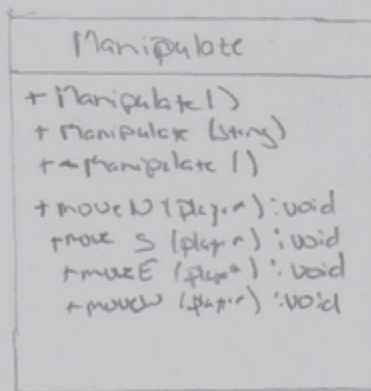 Manipulate
+ Manipulate()
+ Manipulate (String)
+ ~Manipulate ()
+ moveN (player) : void
+ move S (player) : void
+ moveE (player) : void
+ moveW (player) : void